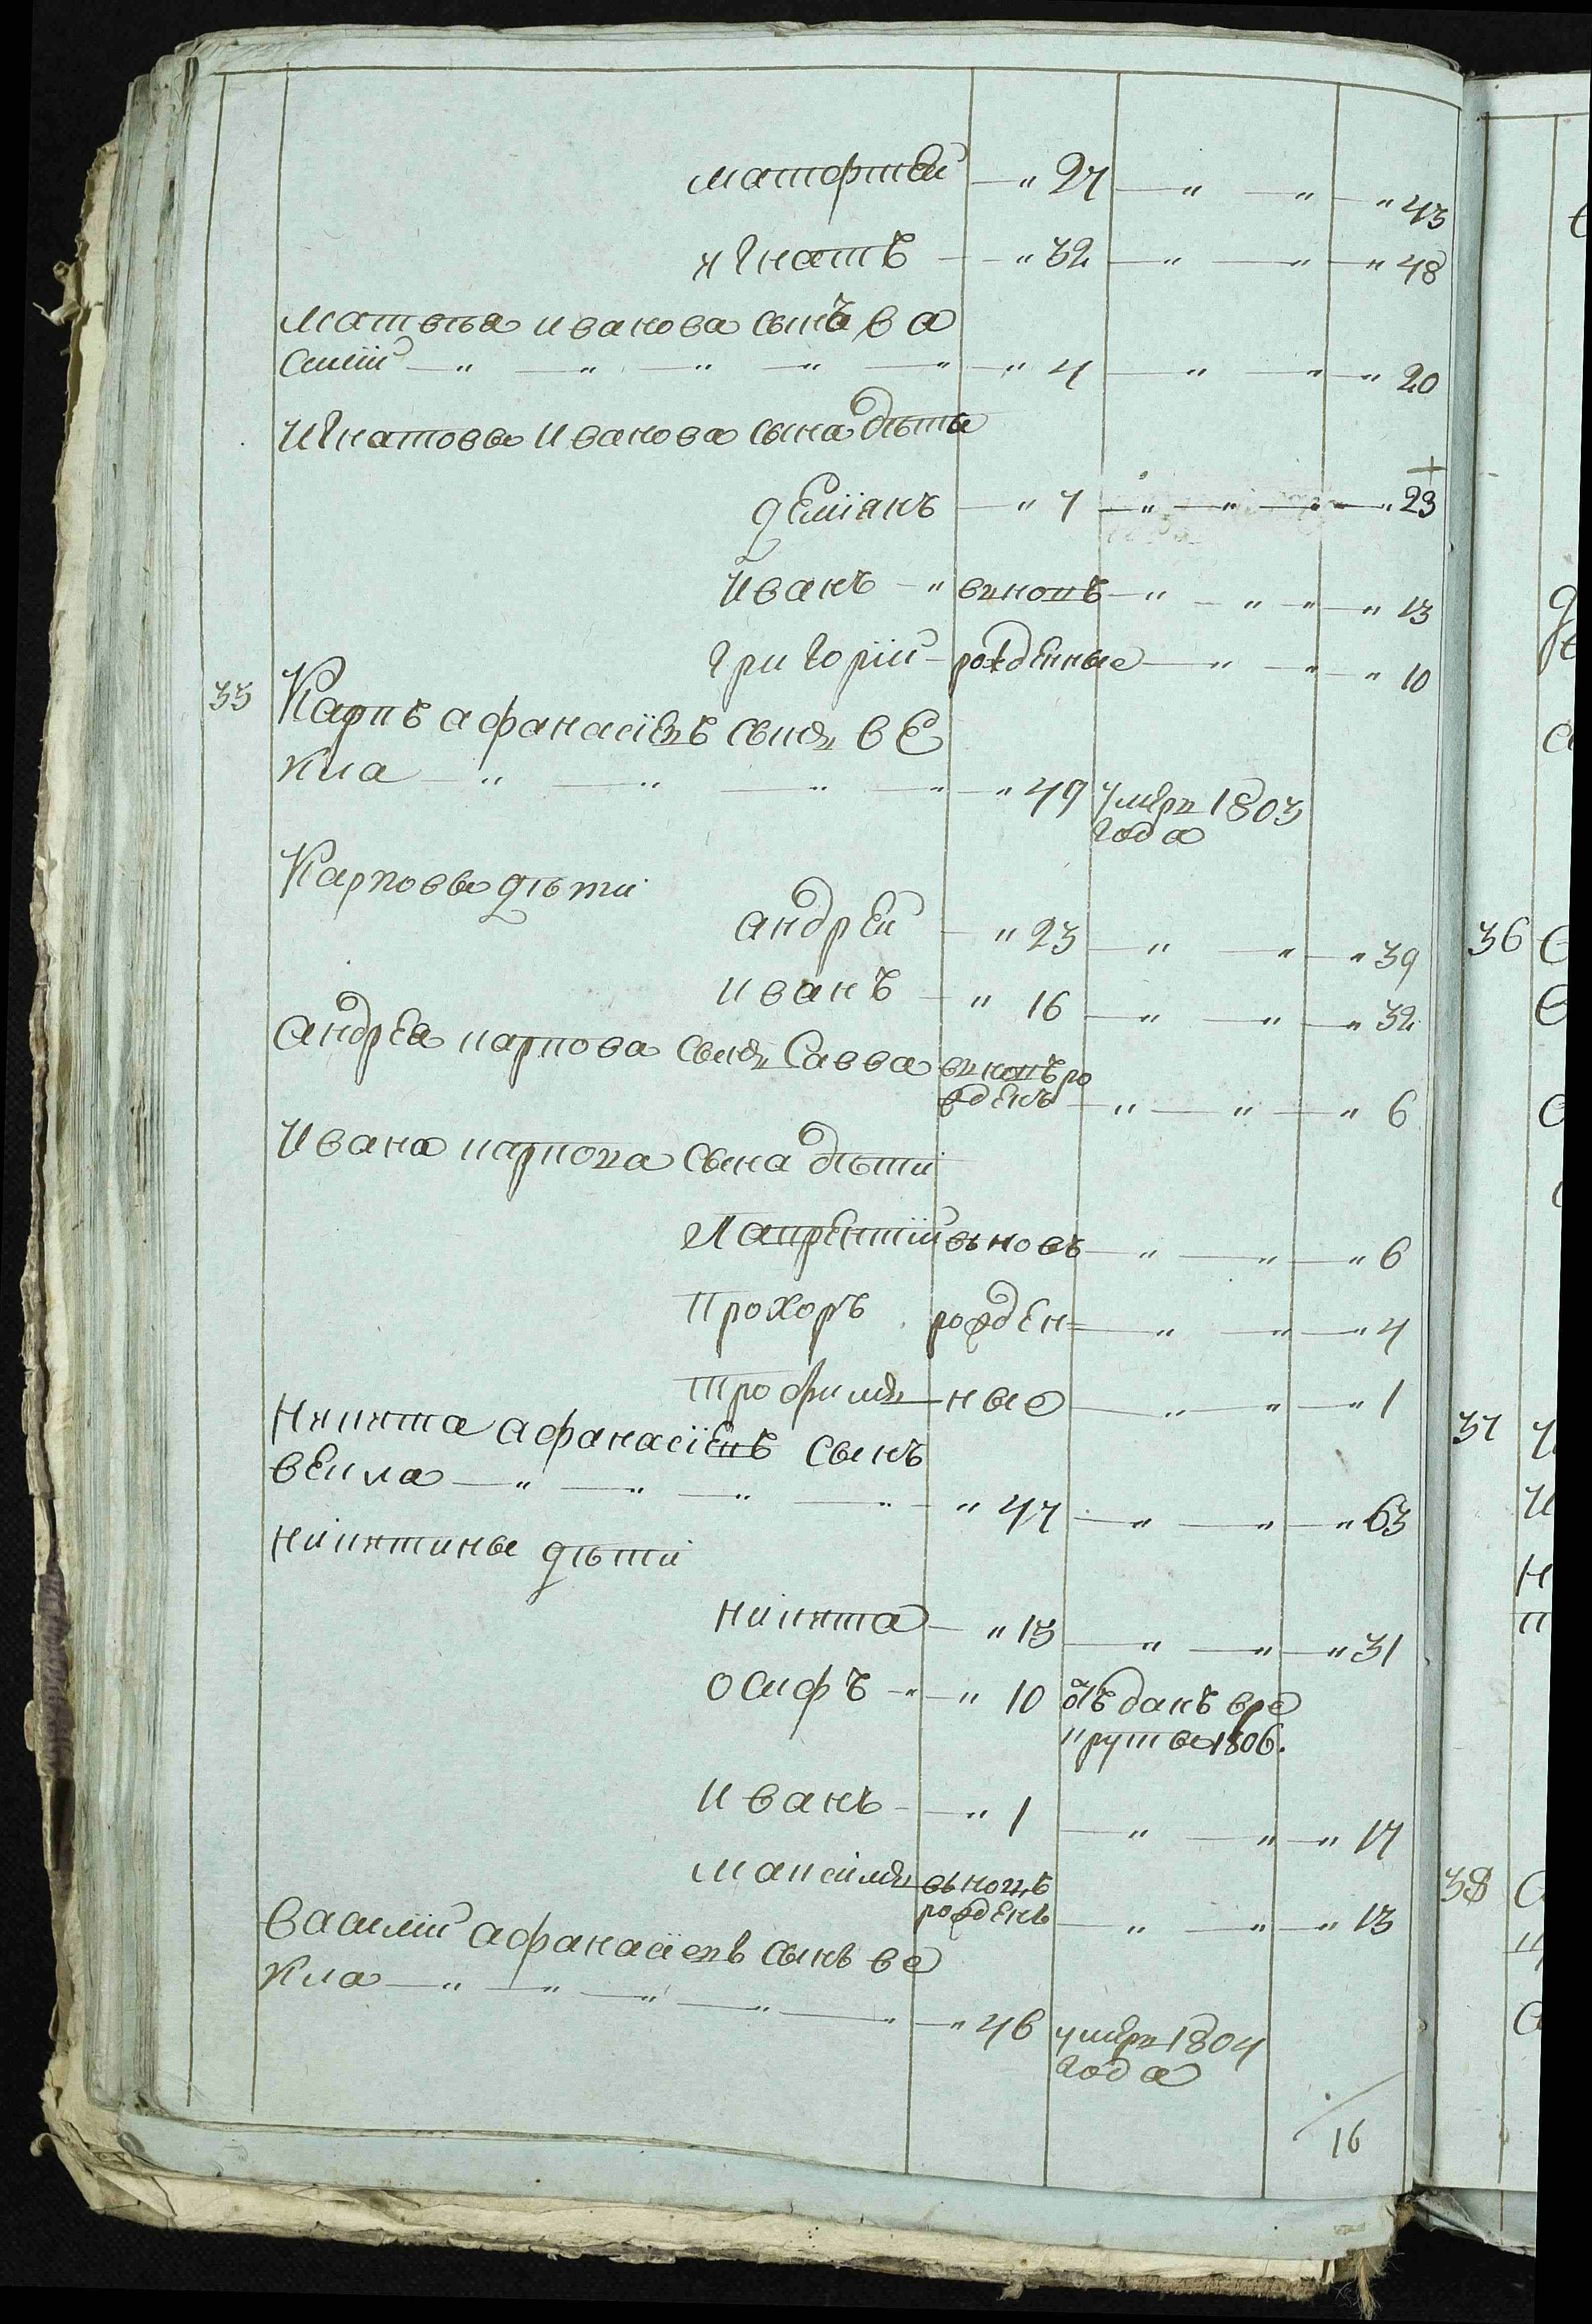 матфтей — " 27 — " — " — " 43
игнатъ — " 32 — " — " — " 48
матвѣя иванова сынъ ва
силій — " — " — " — " — " — " 4 — " — " — " 20
Игнатовы Иванова сына дѣти
деміянъ — " 7 — " — " — " — " 23
Иванъ — " вновь — " — " — " — " 13
григорій — рожденные — " — " — " 10
35 Карпъ афанасіевъ сынъ ве
кла — " — " — " — " — " 49 умре 1803
года
Карповы дѣти
андрей — " 23 — " — " — " 39
иванъ — " 16 — " — " — " 32
андрея карпова сынъ Савва вновь ро
жденъ — " — " — " 6
Ивана карпова сына дѣти
Лаврентій вновь — " — " — " 6
Прохоръ рожден= — " — " — " 4
трофимъ — ные — " — " — " 1
никита афанасіевъ сынъ
векла — " — " — " — " — " 47 — " — " — " 63
никитины дѣти
никита — " 15 — " — " — " 31
осифъ — " — " 10 отъданъ вре
круты 1806.
иванъ — — " 1 — " — " — " 17
максимъ вновь
рожденъ — " — " — " 13
василій афанасіевъ сынъ ве
кла — " — " — " — " — " — " 46 умре 1804
года
16
36
37
38